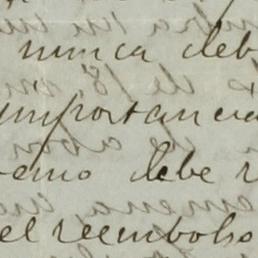 nunca deb
importancia
emo debe r
el reembolso